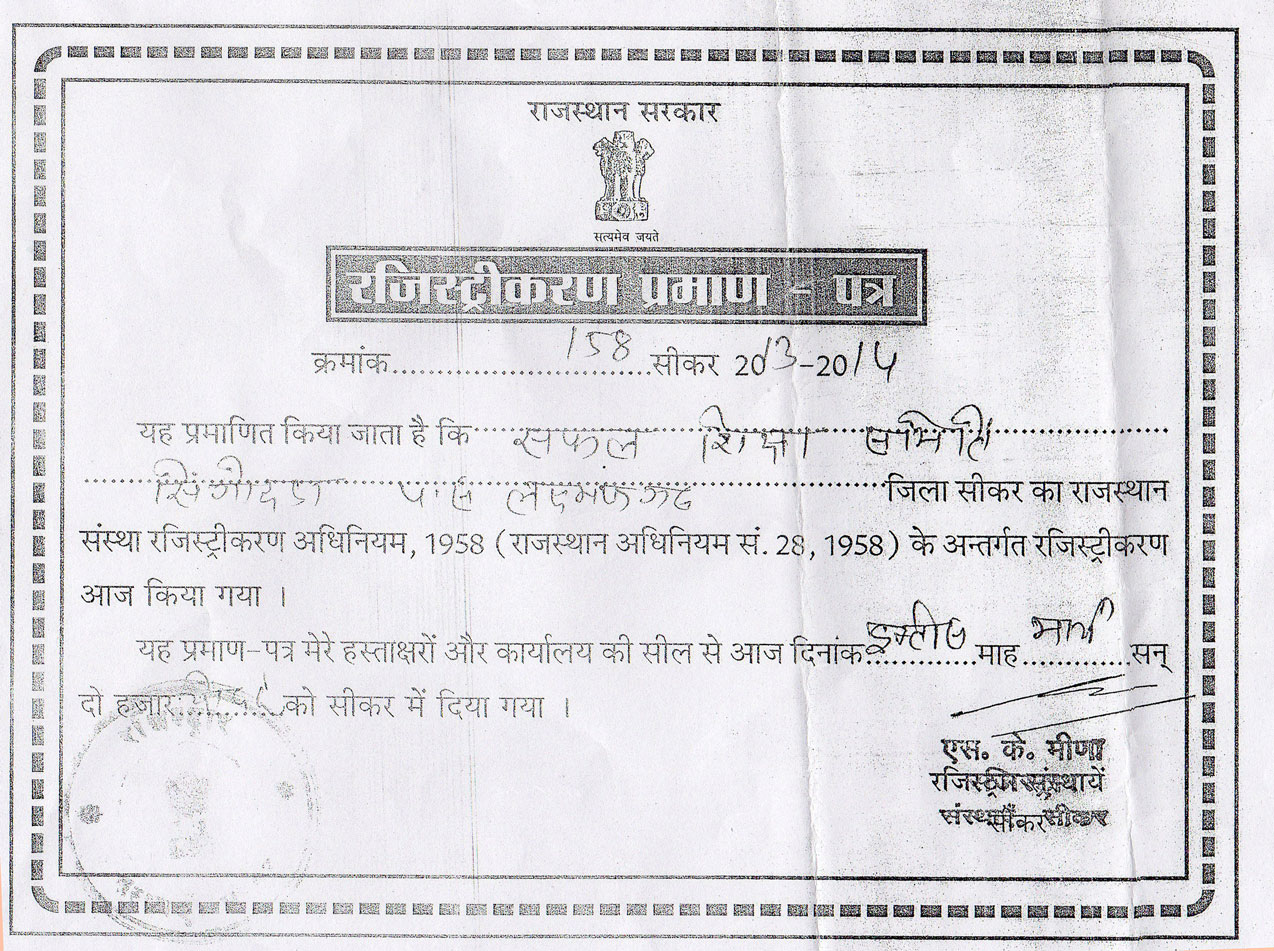 राजस्थान सरकार
सत्यमेव जयते
रजिस्ट्रीकरण प्रमाण - पत्र
क्रमांक..........158..........सीकर 2013-2014
यह प्रमाणित किया जाता है कि सफल शिक्षा समिति
प.स. जिला सीकर का राजस्थान
संस्था रजिस्ट्रीकरण अधिनियम, 1958 (राजस्थान अधिनियम सं. 28, 1958) के अन्तर्गत रजिस्ट्रीकरण
आज किया गया ।
यह प्रमाण-पत्र मेरे हस्ताक्षरों और कार्यालय की सील से आज दिनांक माह मार्च सन्
दो हजार को सीकर में दिया गया ।
एस. के. मीणा
रजिस्ट्रार संस्थायें
सीकर